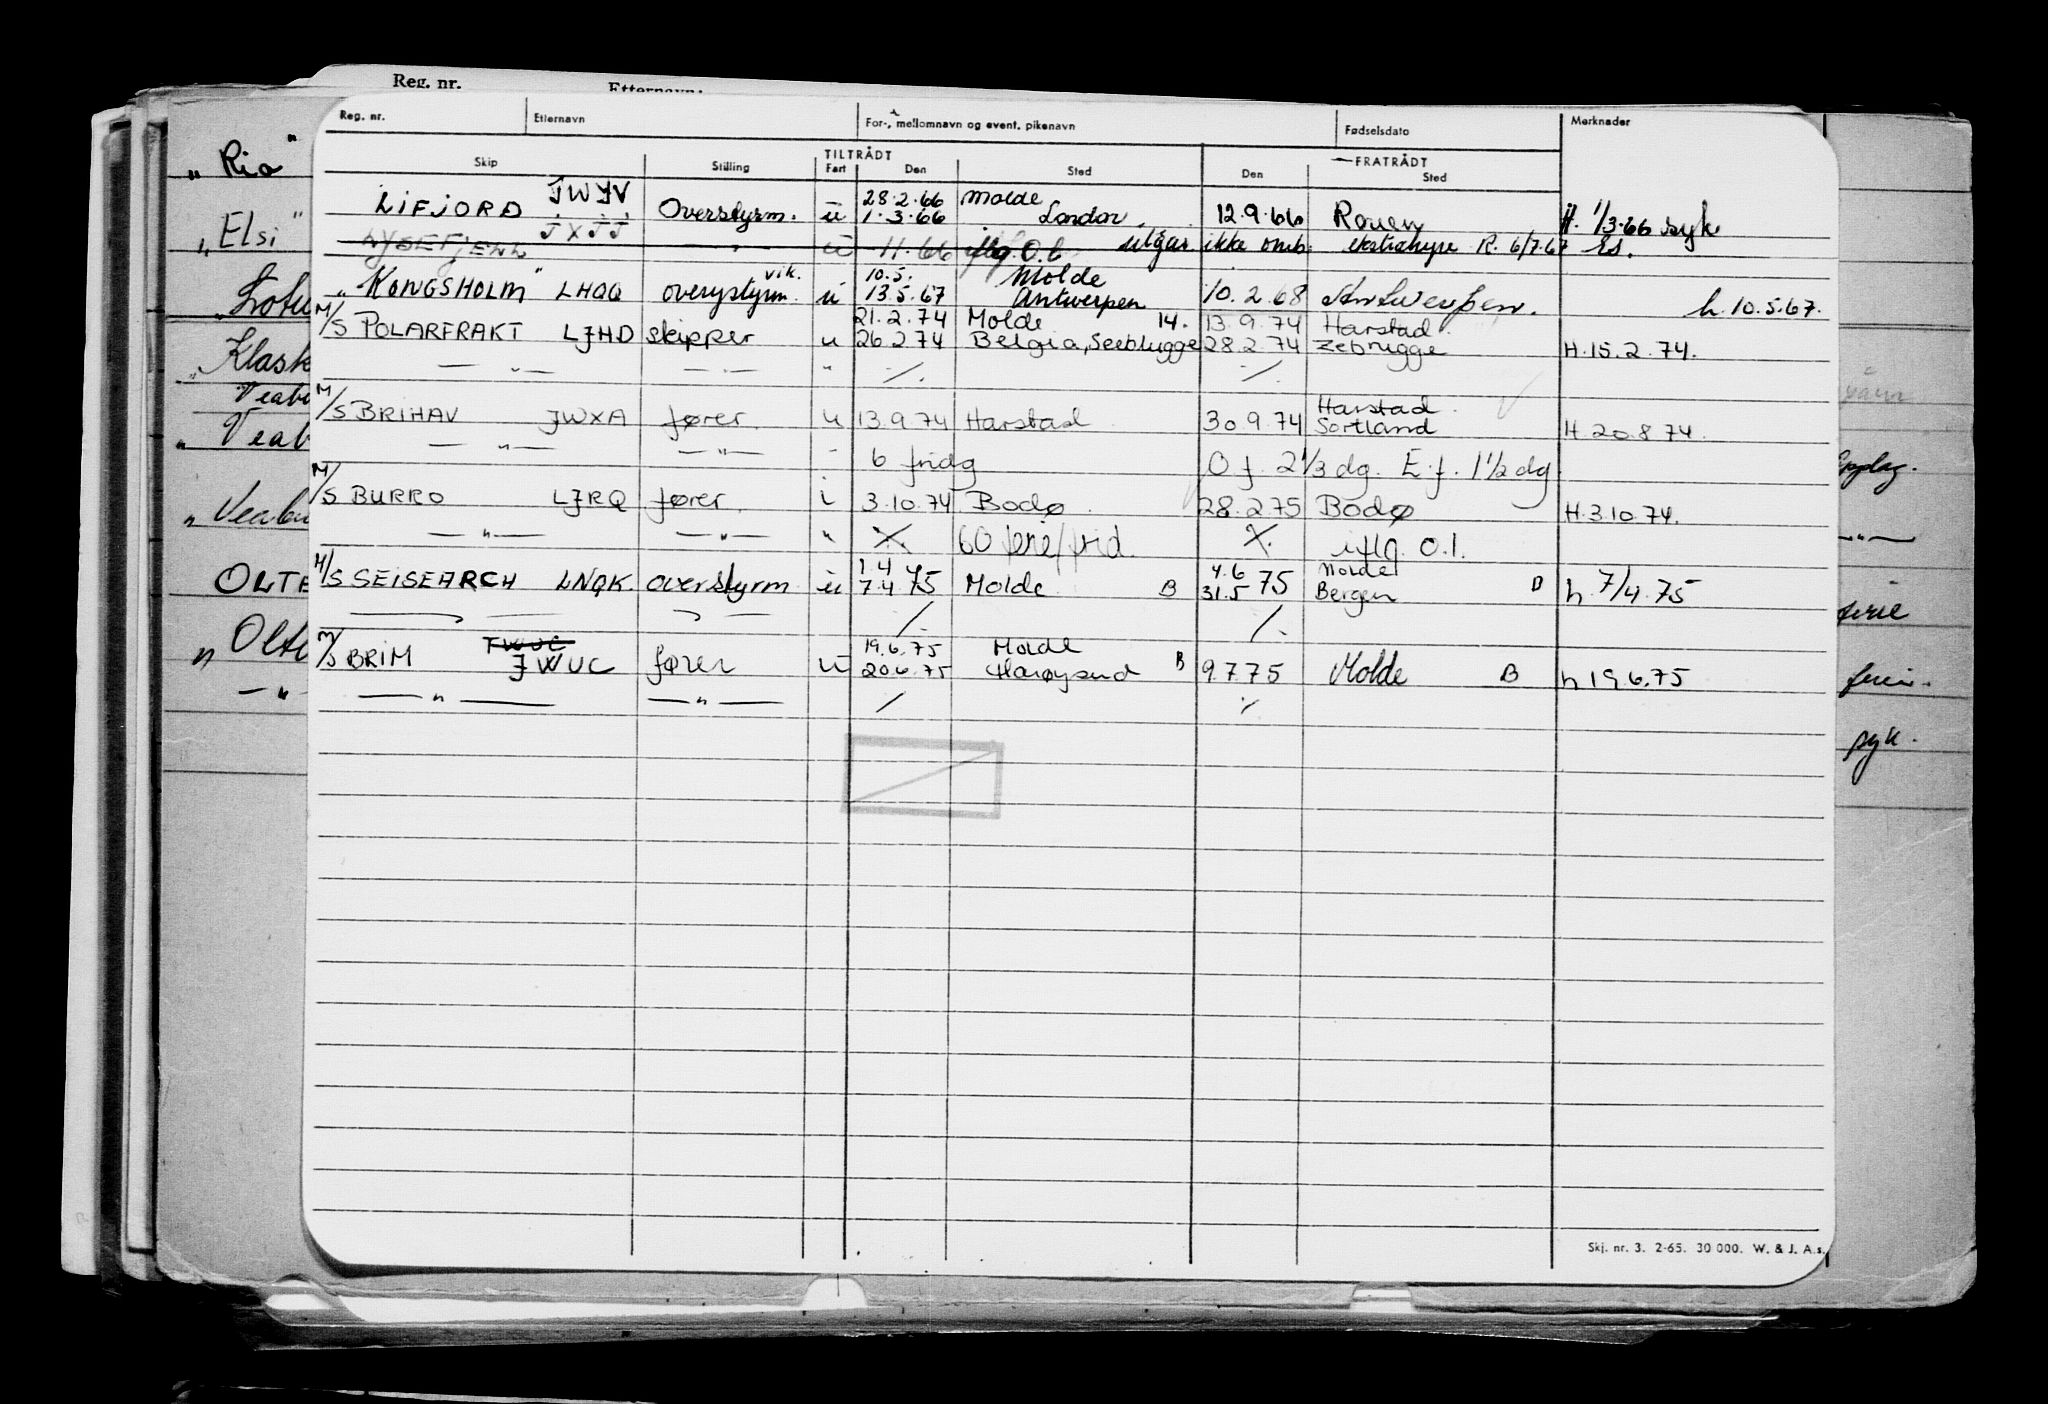 Reg. nr. Etternavn:
Reg. nr. Etternavn For-, mellomnavn og event. pikenavn Fødselsdato Merknader
TILTRÅDT FRATRÅDT
Skip Stilling Fart Den Sted Den Sted
"Ria"
JWJV 28.2.66 Molde
LIFJORD Overstyrm. u 1.3.66 London 12.9.66 Rouen H. 1/3.66 syk
JXJJ
"Elsi"
LYSEFJELL " u 11.66 iflg. O.b utgår ikke omb. ekstrahyre R. 6/7.67
vik. 10.5. Molde
"KONGSHOLM" LHQQ overstyrm. u 13.5.67 Antwerpen 10.2.68 Antwerpen. h. 10.5.67.
21.2.74 Molde 14. 13.9.74 Harstad.
M/S POLARFRAKT LJHD skipper u 26.2.74 Belgia, Seebrugge 28.2.74 Zebrügge H.15.2.74.
— " — — " — " /. /.
Harstad.
M/S BRIHAV JWXA fører. u 13.9.74 Harstad 30.9.74 Sortland H.20.8.74.
— " — — " — - 6 fridg O.f. 2 1/3 dg. E.f. 1 1/2 dg.
M/S BURRO LJRQ fører. i 3.10.74 Bodø 28.2.75 Bodø H.3.10.74.
— " — — " — " 60 ferie/frid. iflg. O.l.
1.4 4.6 Molde
M/S SEISEARCH LNQK. overstyrm. u 7.4.75 Molde B 31.5 75 Bergen B h. 7/4.75
/. /.
JWUC 19.6.75 Molde
M/S BRIM JWUC fører u 20.6.75 Harøysund B 9.7.75 Molde B h 19.6.75
— " — — " — / /.
ferie
syk.
Skj. nr. 3. 2-65. 30 000. W. & J. A.s.